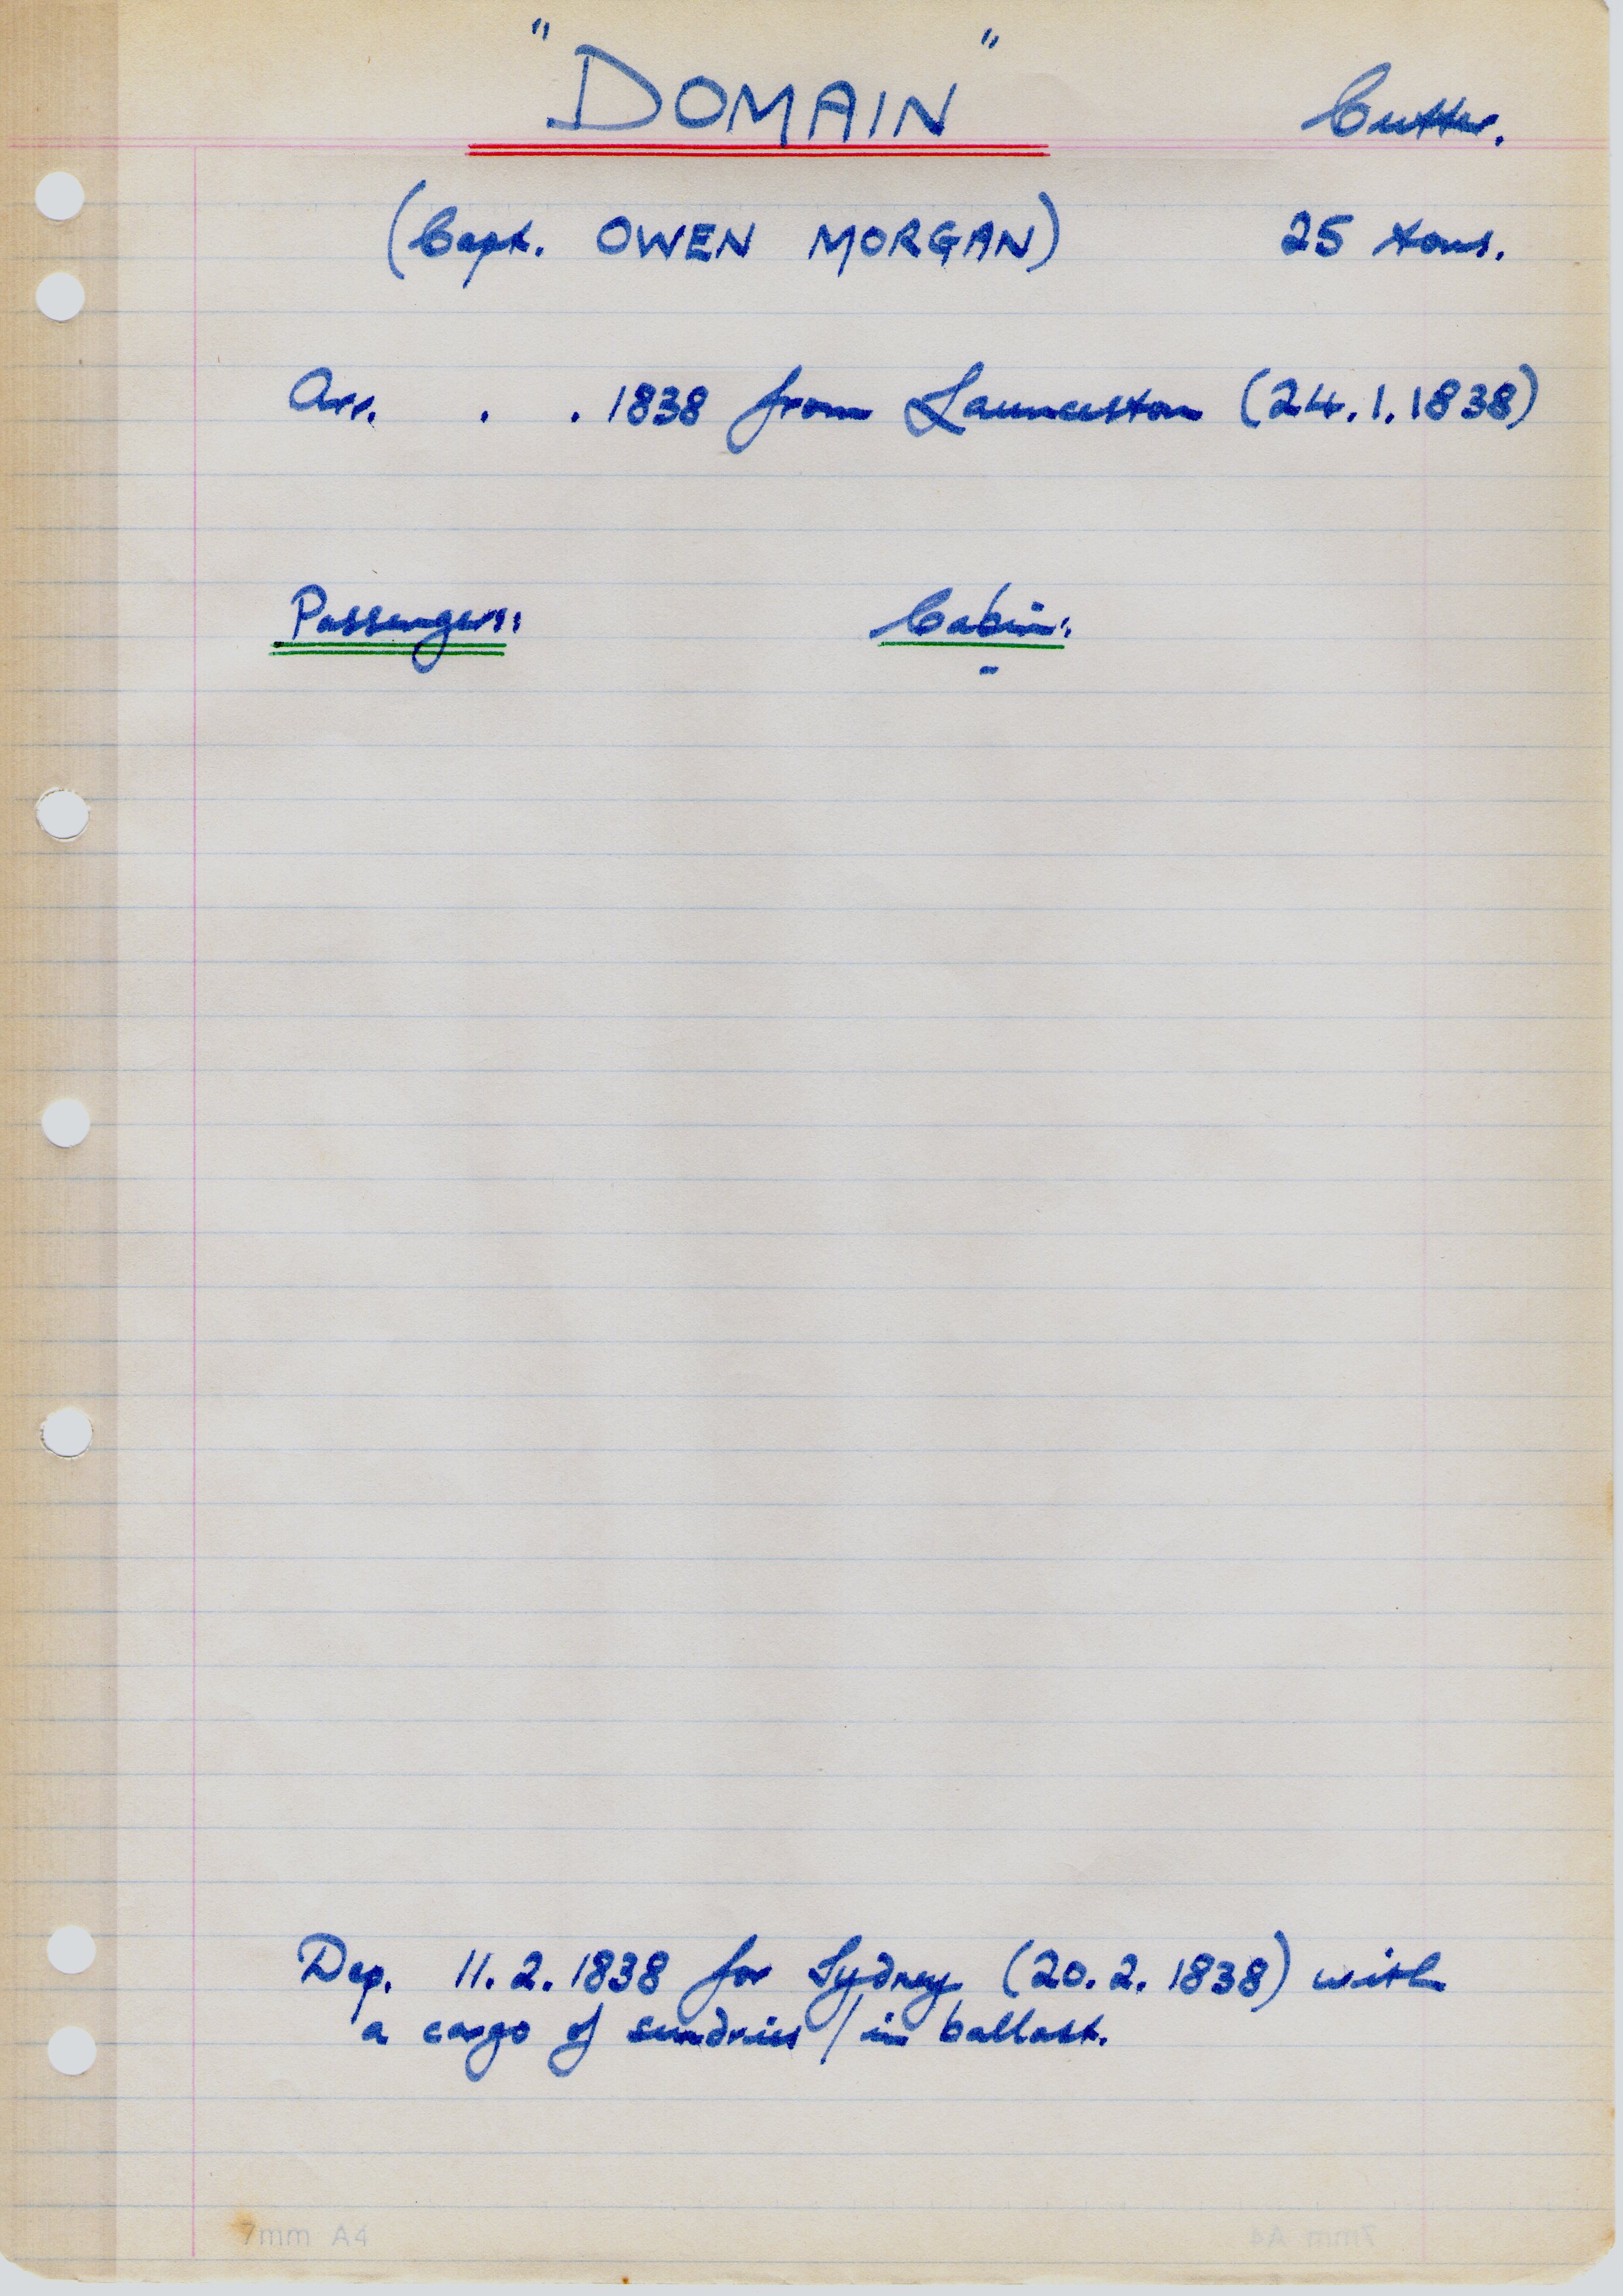 "DOMAIN" Cutter.
(Capt. OWEN MORGAN) 25 tons.
Arr. . . 1838 from Launceston (24.1.1838)
Passengers: Cabin:
-
Dep. 11.2.1838 for Sydney (20.2.1838) with
a cargo of sundries / in ballast.
7mm A4